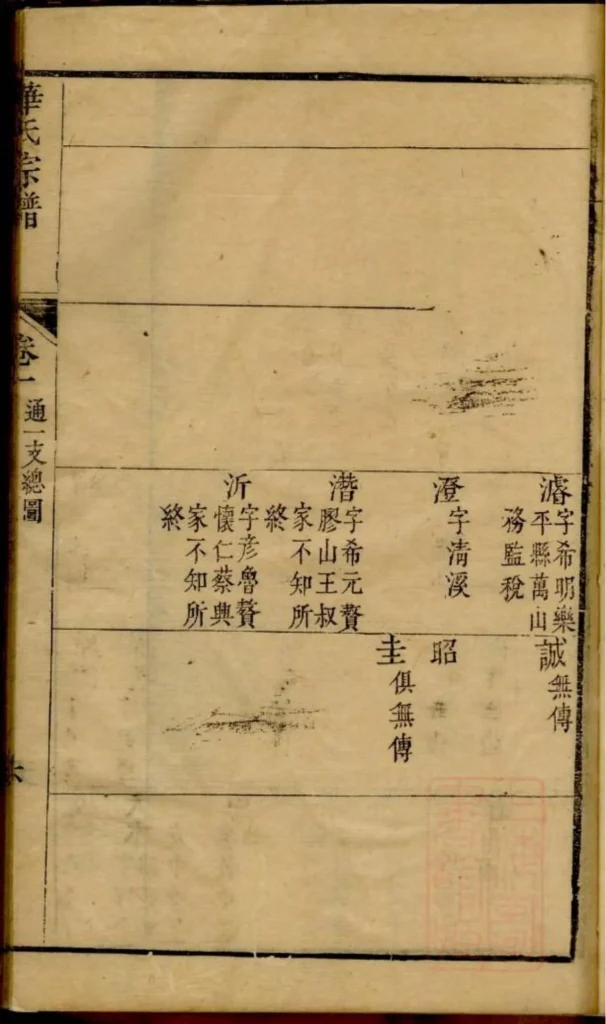 濬
字希明樂
平縣萬山
務監稅
澄
字清溪
潛
字希元贅
膠山王叔
家不知所
終
沂
字彥魯贅
懷仁蔡典
家不知所
終
誠
無傳
昭
圭
俱無傳
華氏宗譜
卷一
通一支總圖